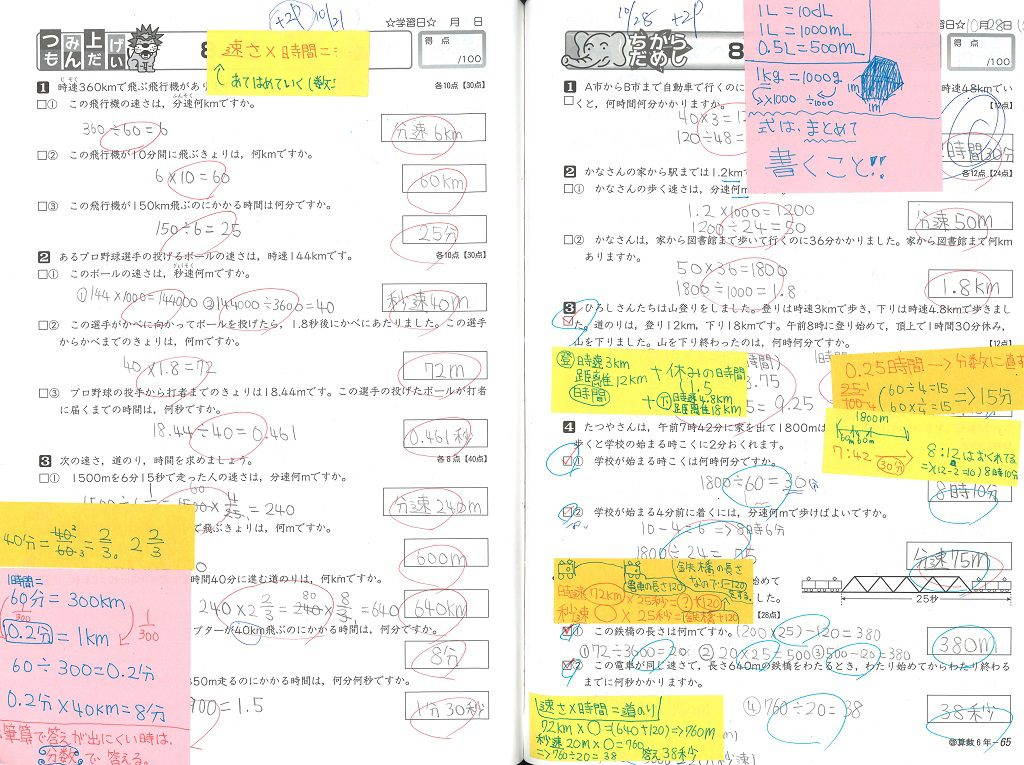 +2P 10/21
☆学習日☆ 月 日
つみ上げ
もんだい
8
得点
/100
速さ×時間＝
あてはめていく(数
1 時速360kmで飛ぶ飛行機があり
各10点【30点】
□① この飛行機の速さは，分速何kmですか。
360÷60=6
分速6km
□② この飛行機が10分間に飛ぶきょりは，何kmですか。
6×10=60
60km
□③ この飛行機が150km飛ぶのにかかる時間は何分ですか。
150÷6=25
25分
2 あるプロ野球選手の投げるボールの速さは，時速144kmです。
各10点【30点】
□① このボールの速さは，秒速何mですか。
①144×1000=144000 ②144000÷3600=40
秒速40m
□② この選手がかべに向かってボールを投げたら，1.8秒後にかべにあたりました。この選手
からかべまでのきょりは，何mですか。
40×1.8=72
72m
□③ プロ野球の投手から打者までのきょりは18.44mです。この選手の投げたボールが打者
に届くまでの時間は，何秒ですか。
18.44÷40=0.461
0.461秒
3 次の速さ，道のり，時間を求めましょう。
各8点【40点】
□① 1500mを6分15秒で走った人の速さは，分速何mですか。
分速240m
で飛ぶきょりは，何mですか。
40分=40/60=2/3。 2 2/3
600m
時間40分に進む道のりは，何kmですか。
240×2 2/3=240×8/3=640
640km
プターが40km飛ぶのにかかる時間は，何分ですか。
8分
850m走るのにかかる時間は，何分何秒ですか。
900=1.5
1分30秒
1時間=
60分=300km
1/300
0.2分=1km
1/300
60÷300=0.2分
0.2分×40km=8分
筆算で答えが出にくい時は、
分数で答える。
10/28 +2P
☆学習日
10月28日
ちから
だめし
8
得点
/100
1L=10dL
1L=1000mL
0.5L=500mL
1kg=1000g
×1000 ÷1000
1m
1m
式は、まとめて
書くこと!!
1 A市からB市まで自動車で行くのに
時速48kmでい
くと，何時間何分かかりますか。
【12点】
40×3=12
120÷48=
時間30分
2 かなさんの家から駅までは1.2km
各12点【24点】
□① かなさんの歩く速さは，分速何m
1.2×1000=1200
1200÷24=50
分速50m
□② かなさんは，家から図書館まで歩いて行くのに36分かかりました。家から図書館まで何km
ありますか。
50×36=1800
1800÷1000=1.8
1.8km
3 ひろしさんたちは山登りをしました。登りは時速3kmで歩き，下りは時速4.8kmで歩きまし
た。道のりは，登り12km，下り18kmです。午前8時に登り始めて，頂上で1時間30分休み，
山を下りました。山を下り終わったのは，何時何分ですか。
【12点】
登 時速3km
距離12km
時間
+休みの時間
1.5
+下 時速4.8km
距離18km
3.75
=9.25
0.25時間→分数に直す
25/100=1/4
(60÷4=15
60×1/4=15
⇒15分
4 たつやさんは，午前7時42分に家を出て1800mは
歩くと学校の始まる時こくに2分おくれます。
1800m
60m 60m
7:42→
30分
8:12はおくれてる
⇒(12-2=10) 8時10分
□① 学校が始まる時こくは何時何分ですか。
1800÷60=30分
8時10分
□② 学校が始まる4分前に着くには，分速何mで歩けばよいですか。
10-4=6⇒8時6分
1800÷24=75
分速75m
鉄橋の長さ
電車の長さ120
なので-120
をする。
時速72km×25秒=?+120
秒速○×25秒=鉄橋+120
始めて
した。
【28点】
25秒
□① この鉄橋の長さは何mですか。(200×25)-120=380
①72÷3600=20 ②20×25=500 ③500-120=380
380m
□② この電車が同じ速さで，長さ640mの鉄橋をわたるとき，わたり始めてからわたり終わる
までに何秒かかりますか。
④760÷20=38
38秒
速さ×時間=道のり
72km×○=(640+120)⇒760m
秒速20m×○=760
⇒760÷20=38 答え38秒
算数6年－65